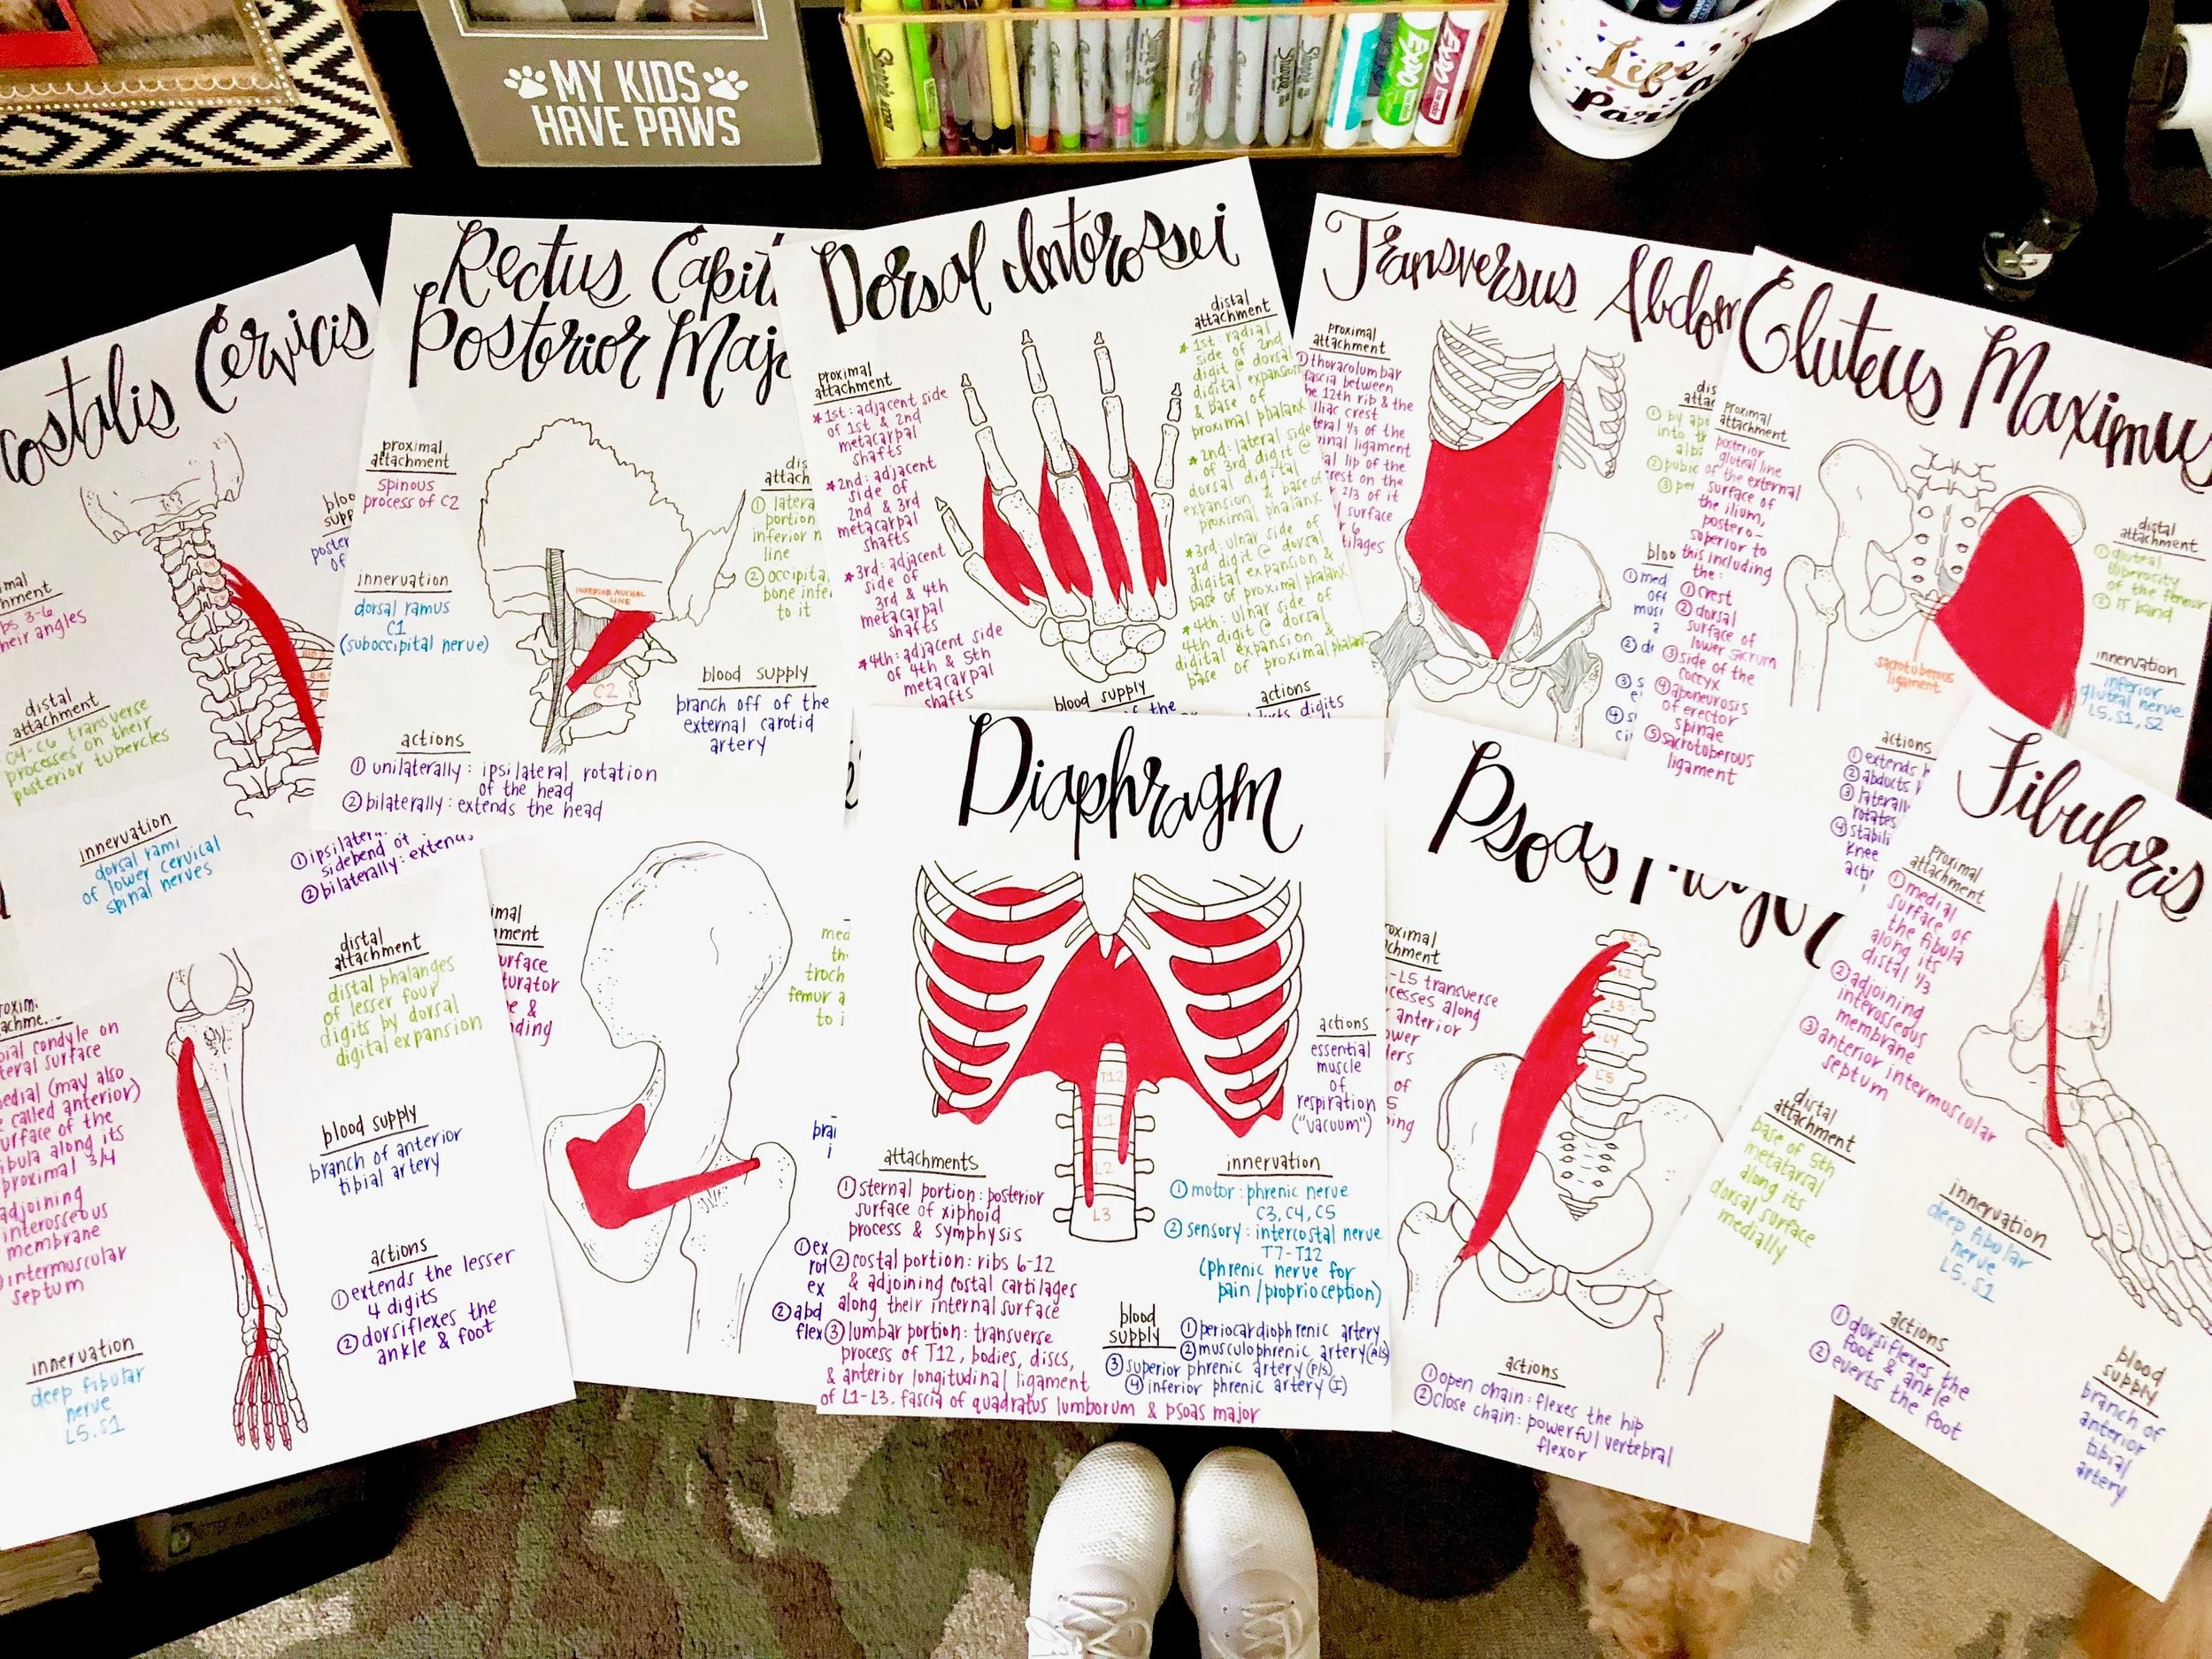 MY KIDS
HAVE PAWS
Sharpie
EXPO
EXPO
Life
a
costalis Cervicis
ribs 3-6
their angles
distal
attachment
C4-C6 transverse
processes on their
posterior tubercles
innervation
dorsal rami
of lower cervical
spinal nerves
①ipsilater
sidebend of
②bilaterally: extends
Rectus Capit
Posterior Majo
proximal
attachment
spinous
process of C2
innervation
dorsal ramus
C1
(suboccipital nerve)
INFERIOR NUCHAL
LINE
C2
① latera
portion
inferior n
line
② occipita
bone infe
to it
blood supply
branch off of the
external carotid
artery
actions
① unilaterally: ipsilateral rotation
of the head
② bilaterally: extends the head
Dorsal Interossei
proximal
attachment
*1st: adjacent side
of 1st & 2nd
metacarpal
shafts
*2nd: adjacent
side of
2nd & 3rd
metacarpal
shafts
*3rd: adjacent
side of
3rd & 4th
metacarpal
shafts
*4th: adjacent side
of 4th & 5th
metacarpal
shafts
distal
attachment
*1st: radial
side of 2nd
digit @ dorsal
digital expansion
& base of
proximal phalanx
*2nd: lateral side
of 3rd digit @
dorsal digital
expansion & base of
proximal phalanx
*3rd: ulnar side of
3rd digit @ dorsal
digital expansion &
base of proximal phalanx
*4th: ulnar side of
4th digit @ dorsal
digital expansion &
base of proximal phalanx
blood supply
of the
actions
digits
Transversus Abdom
proximal
attachment
①thoracolumbar
fascia between
the 12th rib & the
iliac crest
1/3 of the
ligament
lip of the
crest on the
2/3 of it
surface
6
Gluteus Maximus
proximal
attachment
posterior
gluteal line
of the external
surface of
the ilium,
postero-
superior to
this including
the:
①crest
②dorsal
surface of
lower sacrum
③side of the
coccyx
④aponeurosis
of erector
spinae
⑤sacrotuberous
ligament
sacrotuberous
ligament
distal
attachment
①gluteal
tuberosity
of the femur
② IT band
innervation
inferior
gluteal nerve
L5, S1, S2
actions
①extends h
②abducts
③laterall
rotates
④stabili
knee
acti
distal
attachment
distal phalanges
of lesser four
digits by dorsal
digital expansion
tibial condyle on
lateral surface
medial (may also
be called anterior)
surface of the
fibula along its
proximal 3/4
adjoining
interosseous
membrane
intermuscular
septum
blood supply
branch of anterior
tibial artery
actions
①extends the lesser
4 digits
②dorsiflexes the
ankle & foot
innervation
deep fibular
nerve
L5, S1
Diaphragm
T12
L1
L2
L3
actions
essential
muscle
of
respiration
("vacuum")
attachments
①sternal portion: posterior
surface of xiphoid
process & symphysis
②costal portion: ribs 6-12
& adjoining costal cartilages
along their internal surface
③lumbar portion: transverse
process of T12, bodies, discs,
& anterior longitudinal ligament
of L1-L3. fascia of quadratus lumborum & psoas major
innervation
①motor: phrenic nerve
C3, C4, C5
②sensory: intercostal nerve
T7-T12
(phrenic nerve for
pain/proprioception)
blood
supply
①periocardiophrenic artery
②musculophrenic artery(A/S)
③superior phrenic artery(P/S)
④inferior phrenic artery(I)
Psoas Major
-L5 transverse
processes along
anterior
L2
L3
L4
L5
actions
①open chain: flexes the hip
②close chain: powerful vertebral
flexor
Fibularis
proximal
attachment
①medial
surface of
the fibula
along its
distal 1/3
②adjoining
interosseous
membrane
③anterior intermuscular
septum
distal
attachment
base of 5th
metatarsal
along its
dorsal surface
medially
innervation
deep fibular
nerve
L5, S1
actions
①dorsiflexes the
foot & ankle
②everts the foot
blood
supply
branch of
anterior
tibial
artery